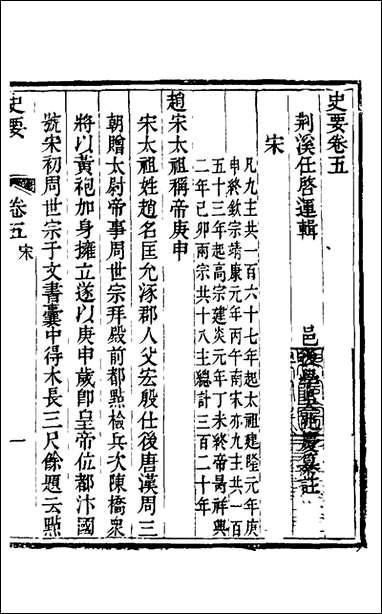 史要卷五
荆溪任啓運輯
邑後學
慶纂註
宋
凡九主共一百六十七年起太祖建隆元年庚
申終欽宗靖康元年丙午南宋亦九主共一百
五十三年起高宗建炎元年丁未終帝昺祥興
二年己卯兩宗共十八主總計三百二十年
趙宋太祖稱帝庚申
宋太祖姓趙名匡允涿郡人父宏殷仕後唐漢周三
朝贈太尉帝事周世宗拜殿前都點檢兵次陳橋衆
將以黃袍加身擁立遂以庚申歲卽皇帝位都汴國
號宋初周世宗于文書囊中得木長三尺餘題云點
史要
卷五
宋
一